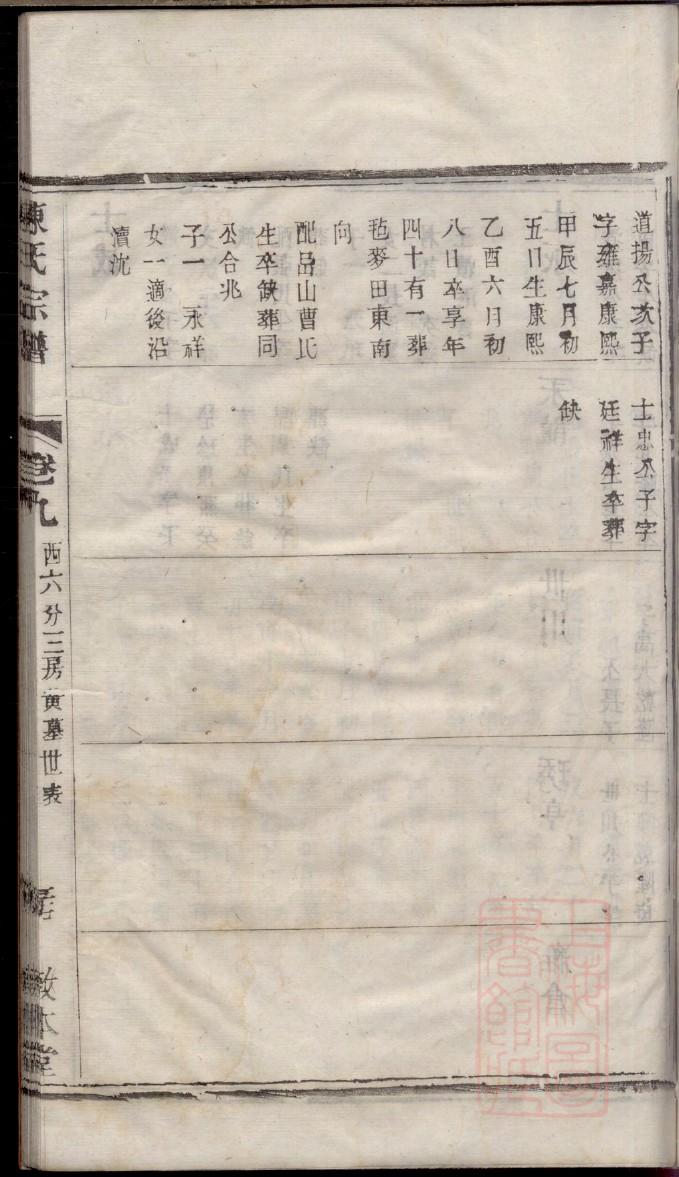 道揚公次子
字雍嘉康熙
甲辰七月初
五日生康熙
乙酉六月初
八日卒享年
四十有一葬
毡麥田東南
向
配呂山曹氏
生卒缺葬同
公合兆
子一 永祥
女一適後沿
瀆沈
士忠公子字
廷祥生卒葬
缺
陳氏宗譜
卷九
西六分三房黄墓世表
敦本堂